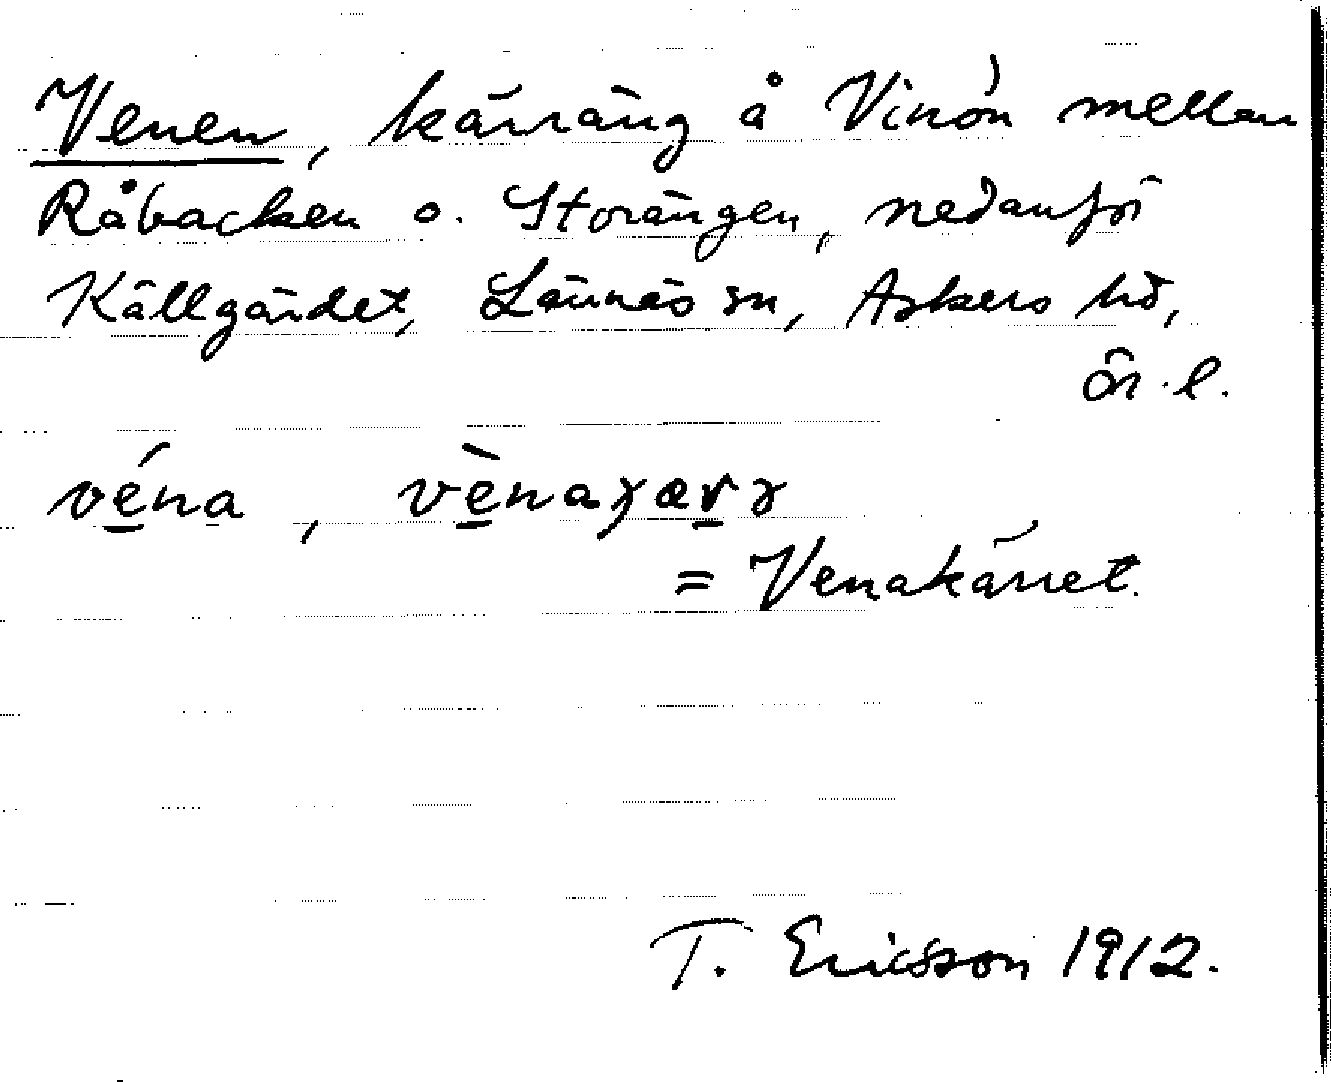 Venen, kärräng å Vinön mellan
Råbacken o. Storängen, nedanför
Källgärdet, Lännäs sn, Askers hd,
Ör. l.
véna, vènaɣærɜ
= Venakärret.
T. Ericsson 1912.